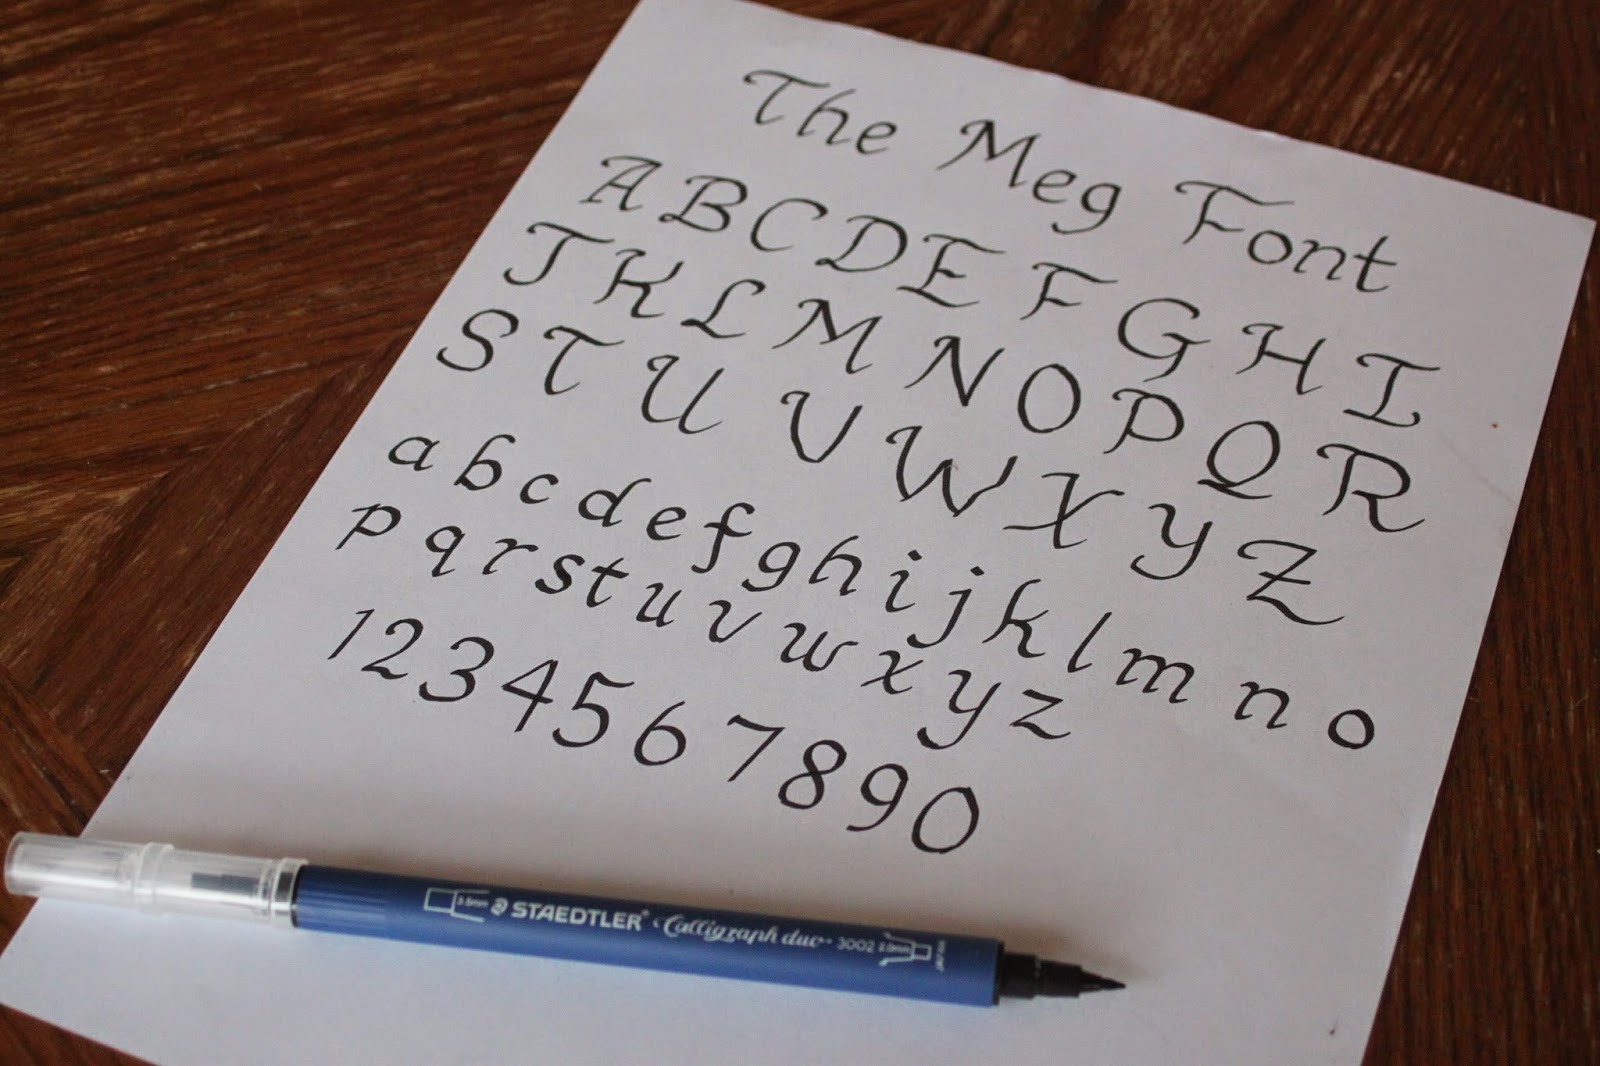 The Meg Font
A B C D E F G H I
J K L M N O P Q R
S T U V W X Y Z
a b c d e f g h i j k l m n o
p q r s t u v w x y z
1 2 3 4 5 6 7 8 9 0
3.5mm STAEDTLER Calligraph duo 3002 2.0mm